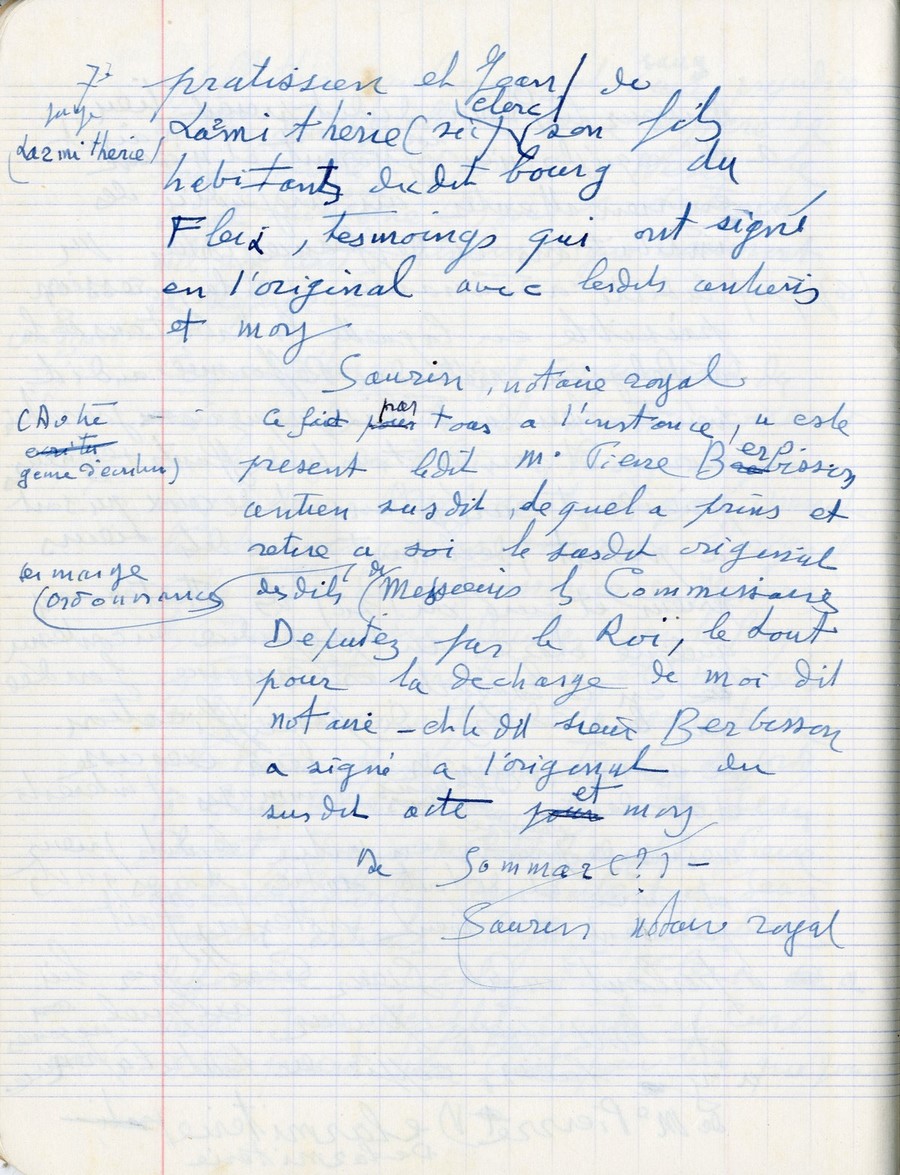 pratissien et Jean de
clerc
Lazmitherie (sic) son fils
(Lazmitherie)
habitants dudit bourg du
Fleix, tesmoings qui ont signé
en l'original avec lesdits
et moy
Saurin, notaire royal
(Autre
ce fait pour par tous a l'instance, a este
ecritu
genre d'écriture)
present ledit Me Pierre Berbisson
susdit, lequel a prins et
retire a soi le susdit original
en marge
(ordonnance)
desdits de Messieurs les Commissaires
Deputez par le Roï, le tout
pour la decharge de moi dit
notaire - et le dit sieur Berbisson
a signé a l'original du
susdit acte pour et moy
De Sommar (?) -
Saurin notaire royal